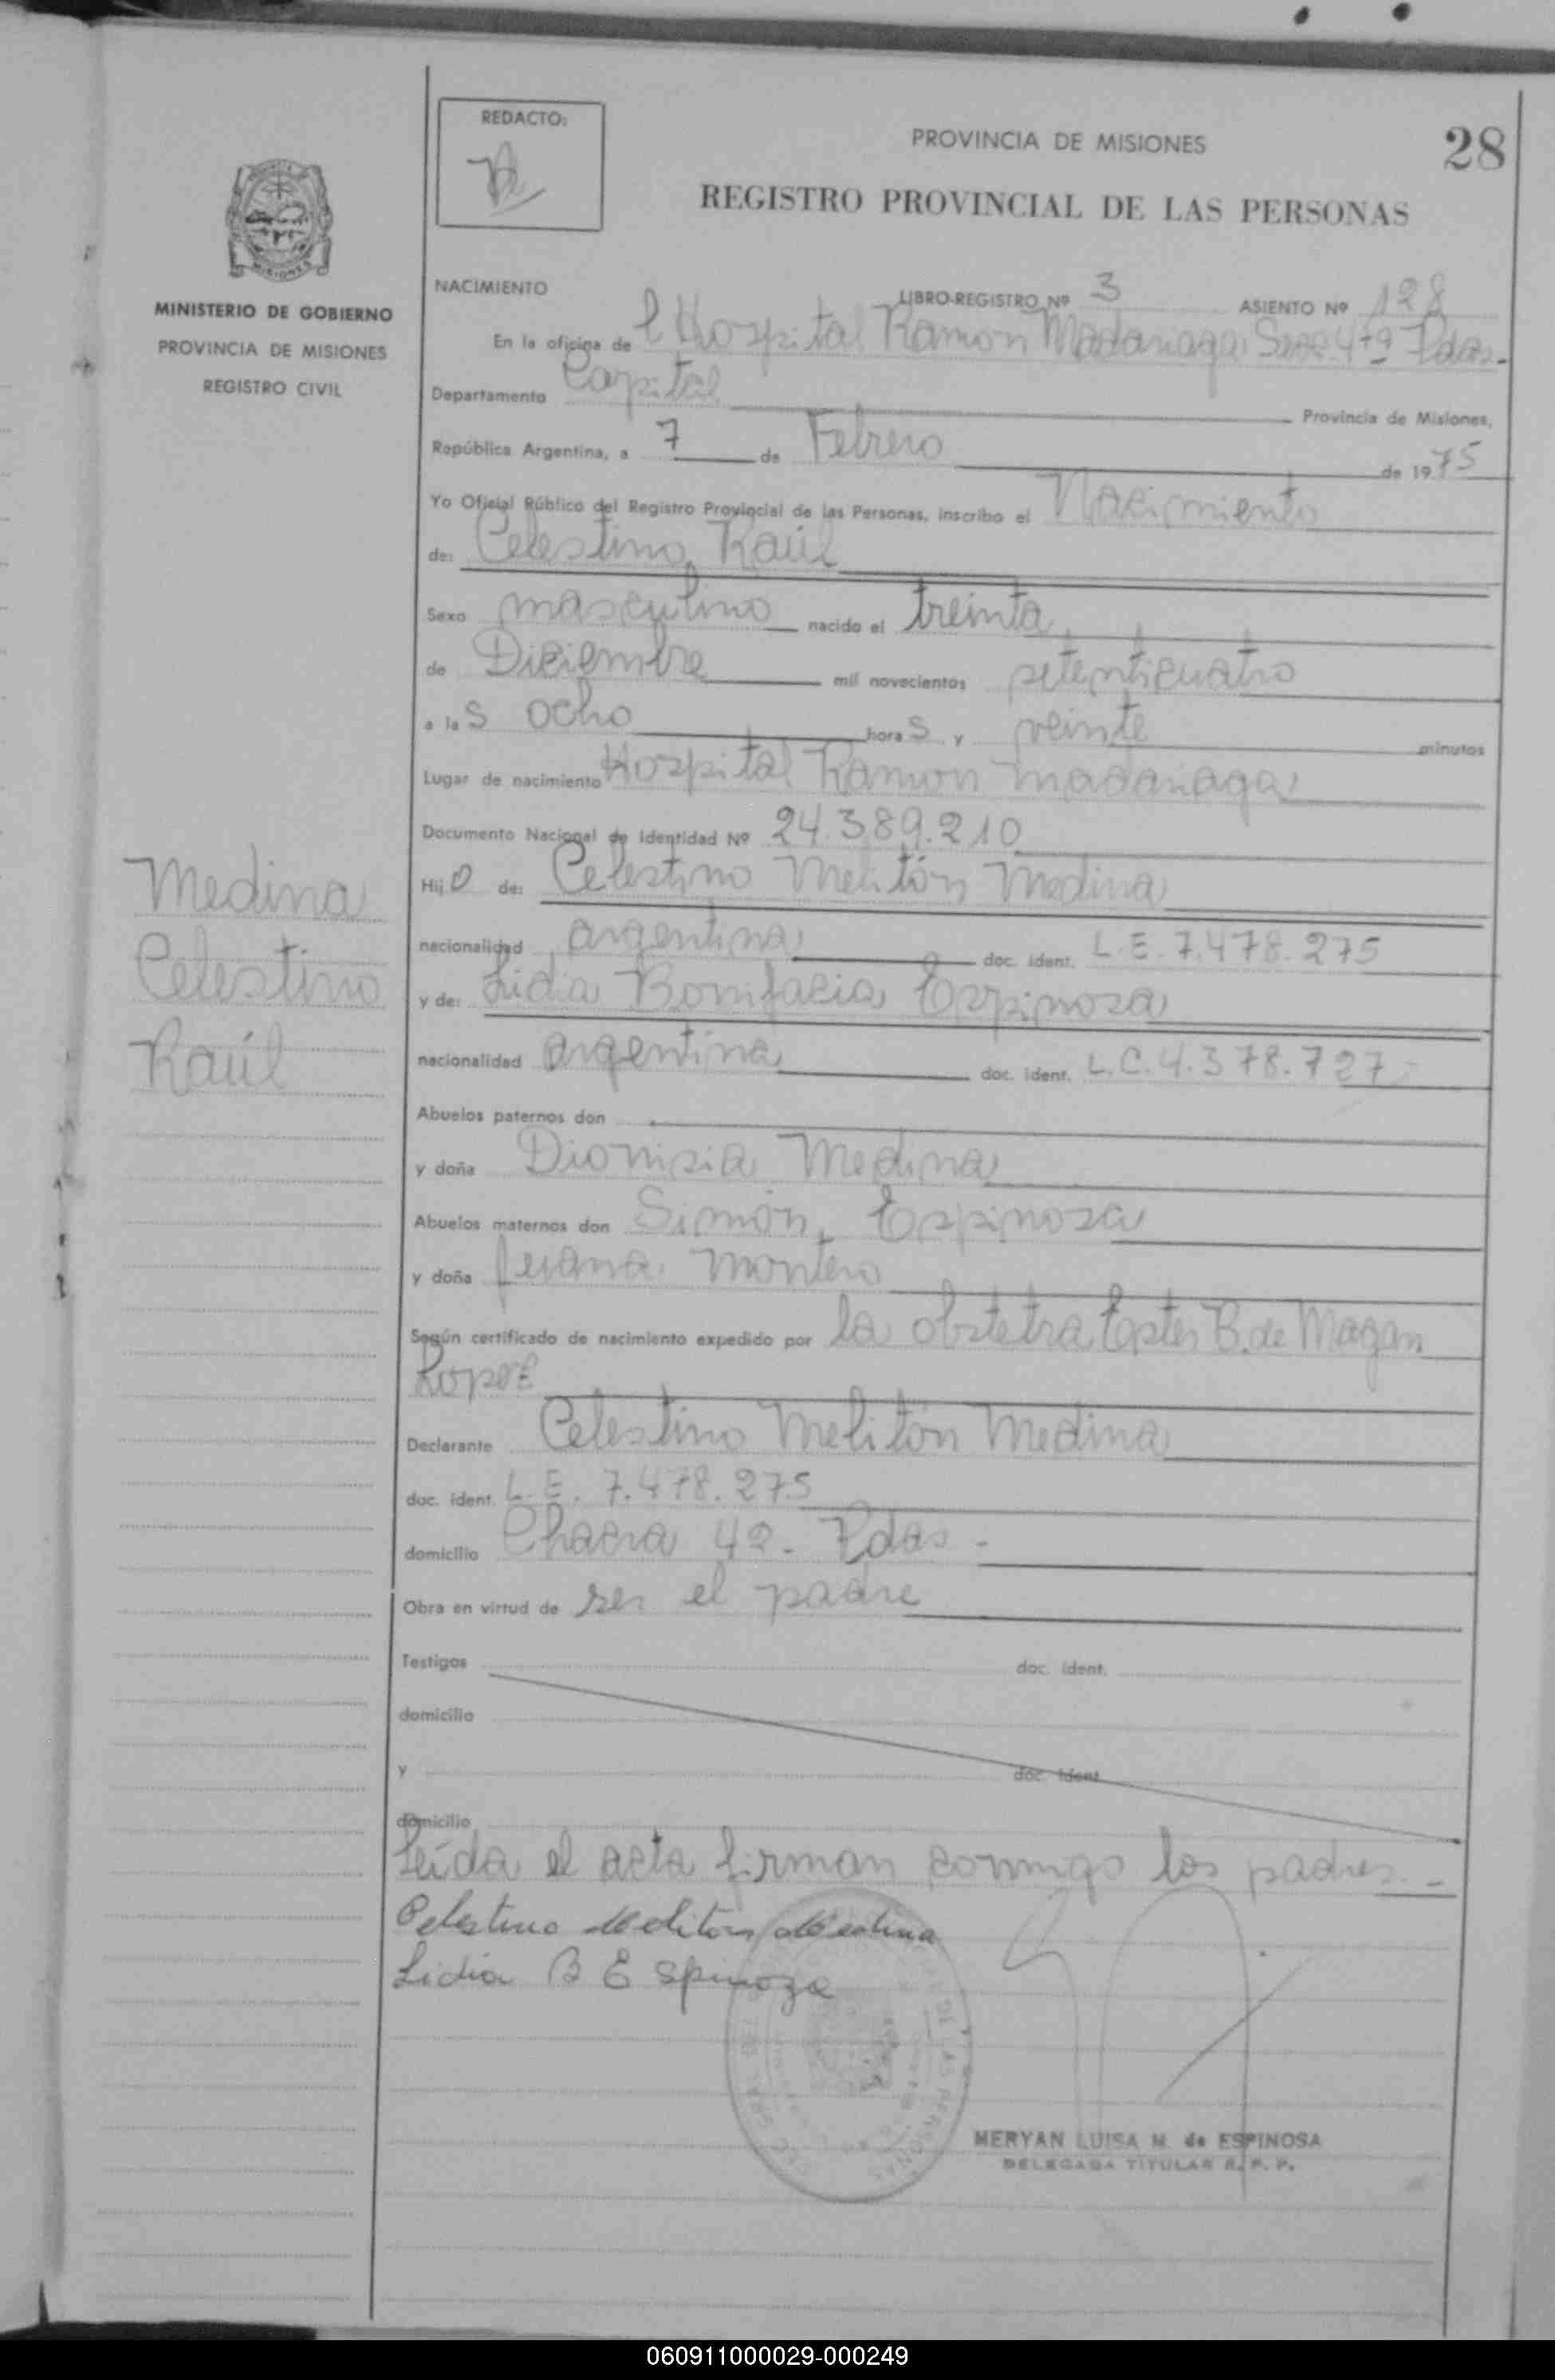 REDACTO:
PROVINCIA DE MISIONES
28
REGISTRO PROVINCIAL DE LAS PERSONAS
MISIONES
MINISTERIO DE GOBIERNO
PROVINCIA DE MISIONES
REGISTRO CIVIL
NACIMIENTO
LIBRO-REGISTRO Nº 3 ASIENTO Nº 128
En la oficina de l Hospital Ramon Madariaga Secc 4ta Pdas.-
Departamento Capital Provincia de Misiones,
República Argentina, a 7 de Febrero de 1975
Yo Oficial Público del Registro Provincial de las Personas, inscribo el Nacimiento
de: Celestino Raúl
Sexo masculino nacido el treinta
de Diciembre mil novecientos setenticuatro
a las ocho horas y veinte minutos
Lugar de nacimiento Hospital Ramon Madariaga
Documento Nacional de Identidad Nº 24.389.210
Hijo de: Celestino Melitón Medina
nacionalidad argentina doc. ident. L.E. 7.478.275
y de: Lidia Bonifacia Espinosa
nacionalidad argentina doc. ident. L.C. 4.378.727-
Medina
Celestino
Raúl
Abuelos paternos don
y doña Dionisia Medina
Abuelos maternos don Simón Espinosa
y doña Juana Montero
Según certificado de nacimiento expedido por la obstetra Ester B. de Magan
Lopez
Declarante Celestino Melitón Medina
doc. ident. L.E. 7.478.275
domicilio Chacra 42. Pdas -
Obra en virtud de ser el padre
Testigos doc. ident.
domicilio
y doc. ident.
domicilio
Leída el acta firman conmigo los padres.-
Celestino Meliton Medina
Lidia B Espinoza
MERYAN LUISA M. de ESPINOSA
DELEGADA TITULAR R. P. P.
060911000029-000249